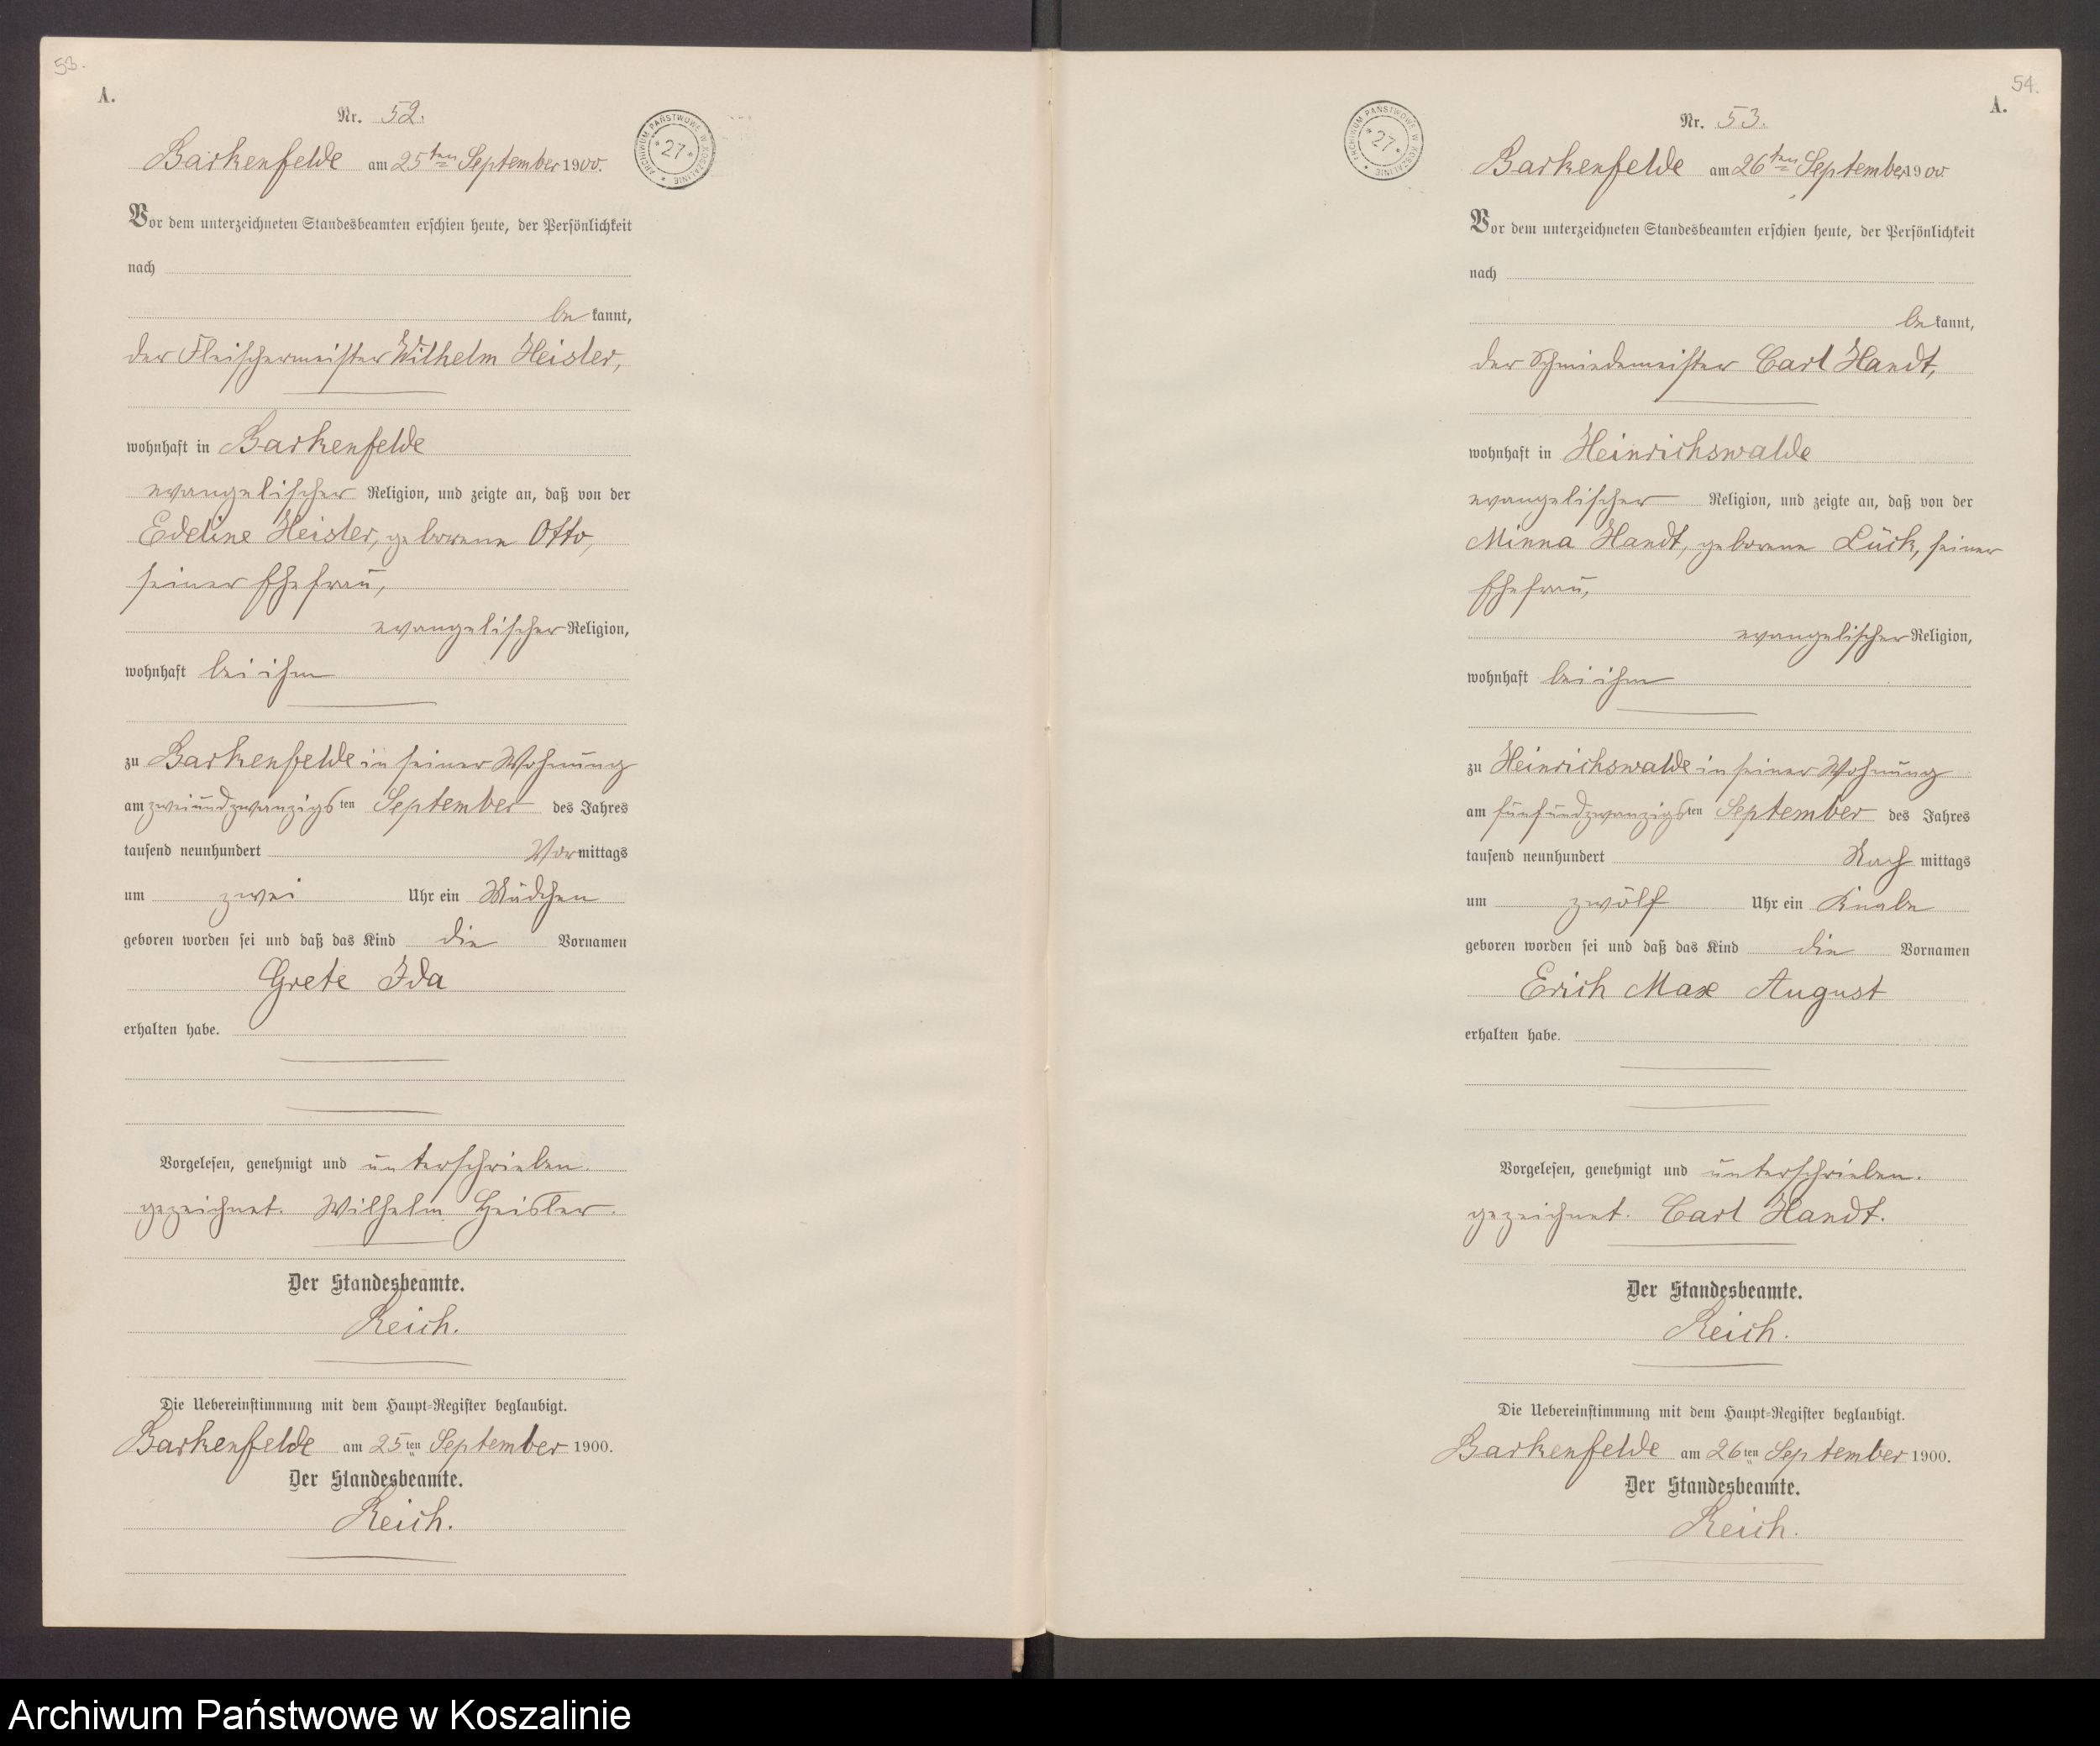 53.
A.
Nr. 52.
Barkenfelde am 25ten September 1900.
Vor dem unterzeichneten Standesbeamten erschien heute, der Persönlichkeit
nach
be kannt,
der Fleischermeister Wilhelm Heisler,
wohnhaft in Barkenfelde
evangelischer Religion, und zeigte an, daß von der
Edeline Heisler, geborene Otto,
seiner Ehefrau,
evangelischer Religion,
wohnhaft bei ihm
zu Barkenfelde in seiner Wohnung
am zweiundzwanzigsten September des Jahres
tausend neunhundert Vormittags
um zwei Uhr ein Mädchen
geboren worden sei und daß das Kind die Vornamen
Grete Ida
erhalten habe.
Vorgelesen, genehmigt und unterschrieben.
gezeichnet. Wilhelm Heisler.
Der Standesbeamte.
Reich.
Die Uebereinstimmung mit dem Haupt-Register beglaubigt.
Barkenfelde am 25ten September 1900.
Der Standesbeamte.
Reich.
ARCHIWUM PAŃSTWOWE W KOSZALINIE
* 27 *
54.
A.
Nr. 53.
Barkenfelde am 26ten September 1900
Vor dem unterzeichneten Standesbeamten erschien heute, der Persönlichkeit
nach
be kannt,
der Schmiedemeister Carl Handt,
wohnhaft in Heinrichswalde
evangelischer Religion, und zeigte an, daß von der
Minna Handt, geborene Lück, seiner
Ehefrau,
evangelischer Religion,
wohnhaft bei ihm
zu Heinrichswalde in seiner Wohnung
am fünfundzwanzigsten September des Jahres
tausend neunhundert Nach mittags
um zwölf Uhr ein Knabe
geboren worden sei und daß das Kind die Vornamen
Erich Max August
erhalten habe.
Vorgelesen, genehmigt und unterschrieben.
gezeichnet. Carl Handt.
Der Standesbeamte.
Reich.
Die Uebereinstimmung mit dem Haupt-Register beglaubigt.
Barkenfelde am 26ten September 1900.
Der Standesbeamte.
Reich.
ARCHIWUM PAŃSTWOWE W KOSZALINIE
* 27 *
Archiwum Państwowe w Koszalinie